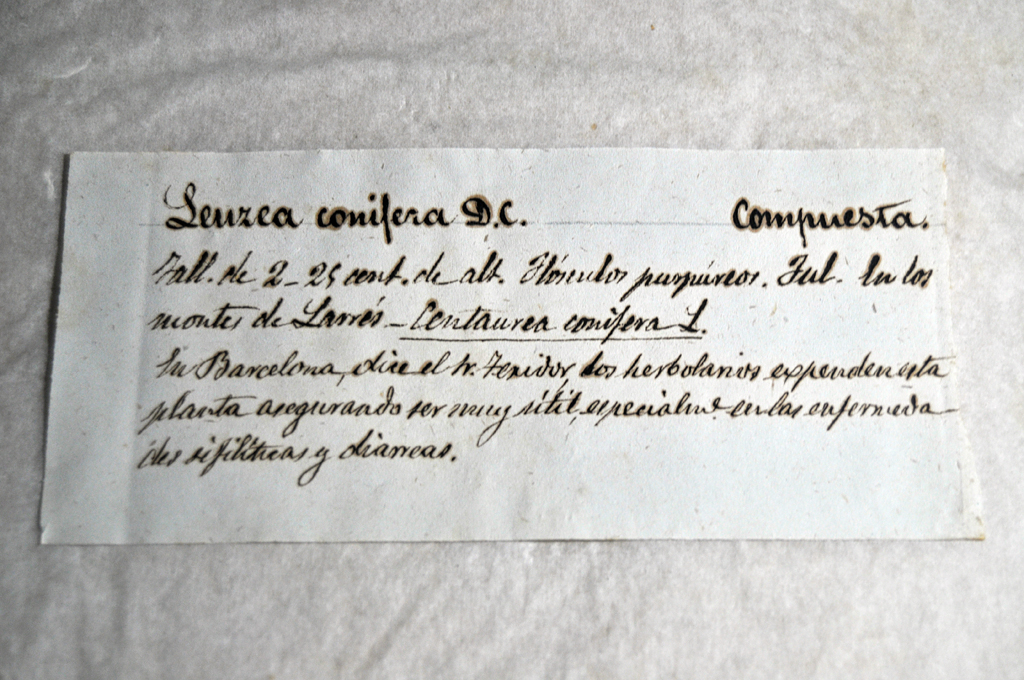 Leuzea conifera D.C. Compuesta.
Tall. de 2-25 cent. de alt. Flósculos purpúreos. Jul. En los
montes de Larrés - Centaurea conifera L.
En Barcelona, dice el Sr. Texidor, los herbolarios expenden esta
planta asegurando ser muy útil, especialmᵉ. en las enfermeda-
des sifilíticas y diarreas.